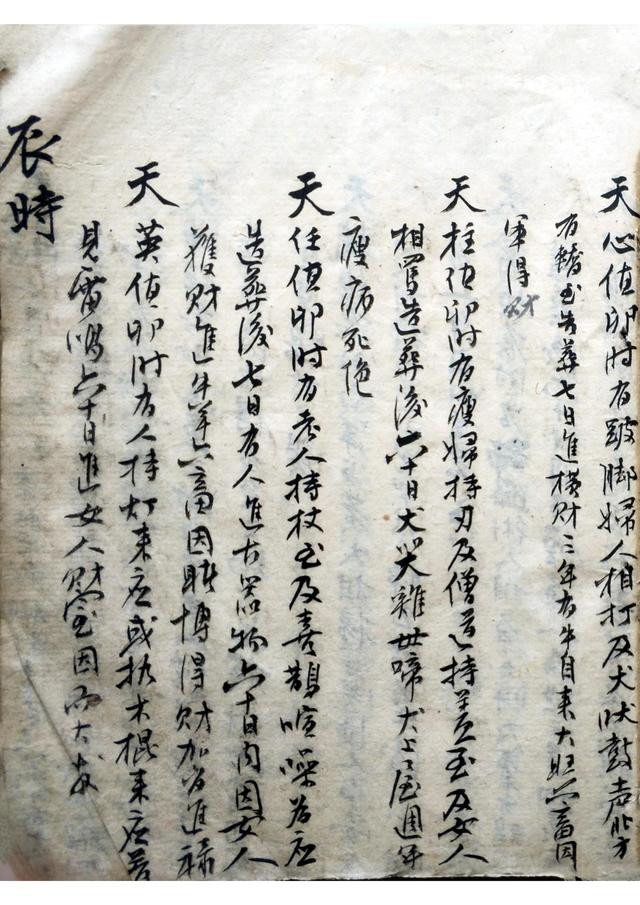 天心值卯时有跛脚婦人相打及犬吠鼓声北方
有至造葬七日進横财三年有牛自来大旺六畜因
军得财
天柱值卯时有瘦婦持刃及僧道持盖至及女人
相罵造葬後六十日犬哭雞母啼犬上屋週年
瘦病死绝
天任值卯时有老人持杖至及喜鵲喧噪為应
造葬後七日有人進古器物六十日内因女人
獲财進牛羊六畜因賭博得财加官進禄
天英值卯时有人持灯来应或执木棍来应若
見雷鳴六十日進女人财宝因而大
辰時